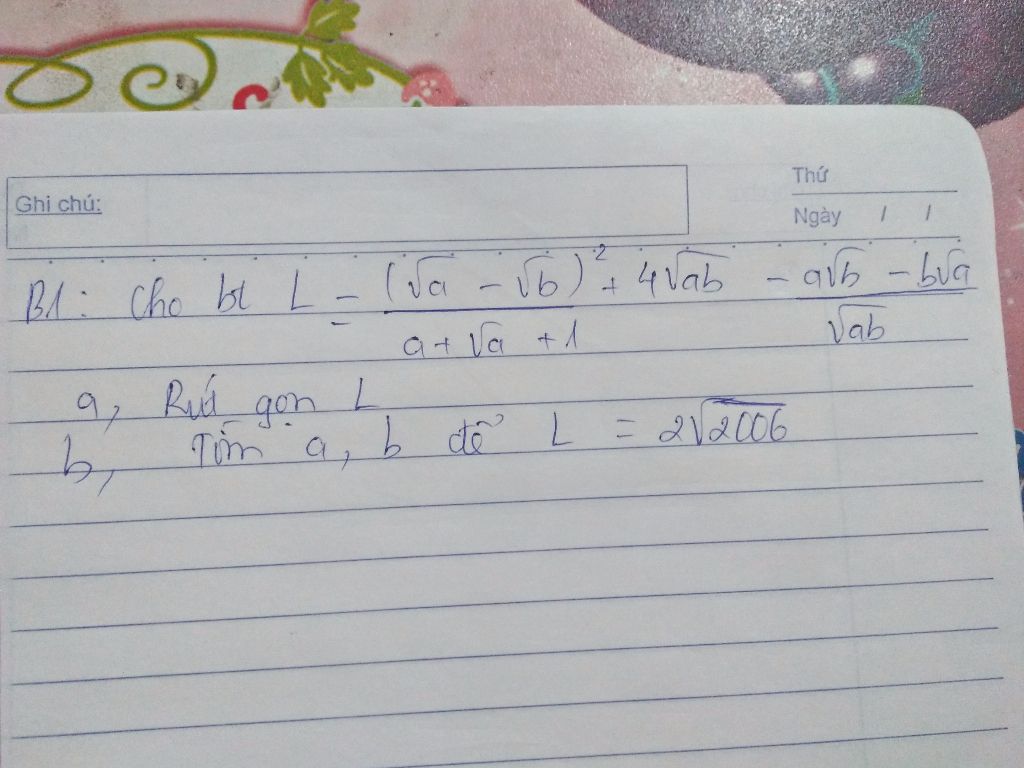 Ghi chú:
Thứ
Ngày / /
B1: Cho bt L = ((√a - √b)² + 4√ab)/(a + √a + 1) - (a√b - b√a)/√ab
a, Rút gọn L
b, Tìm a, b để L = 2√2006